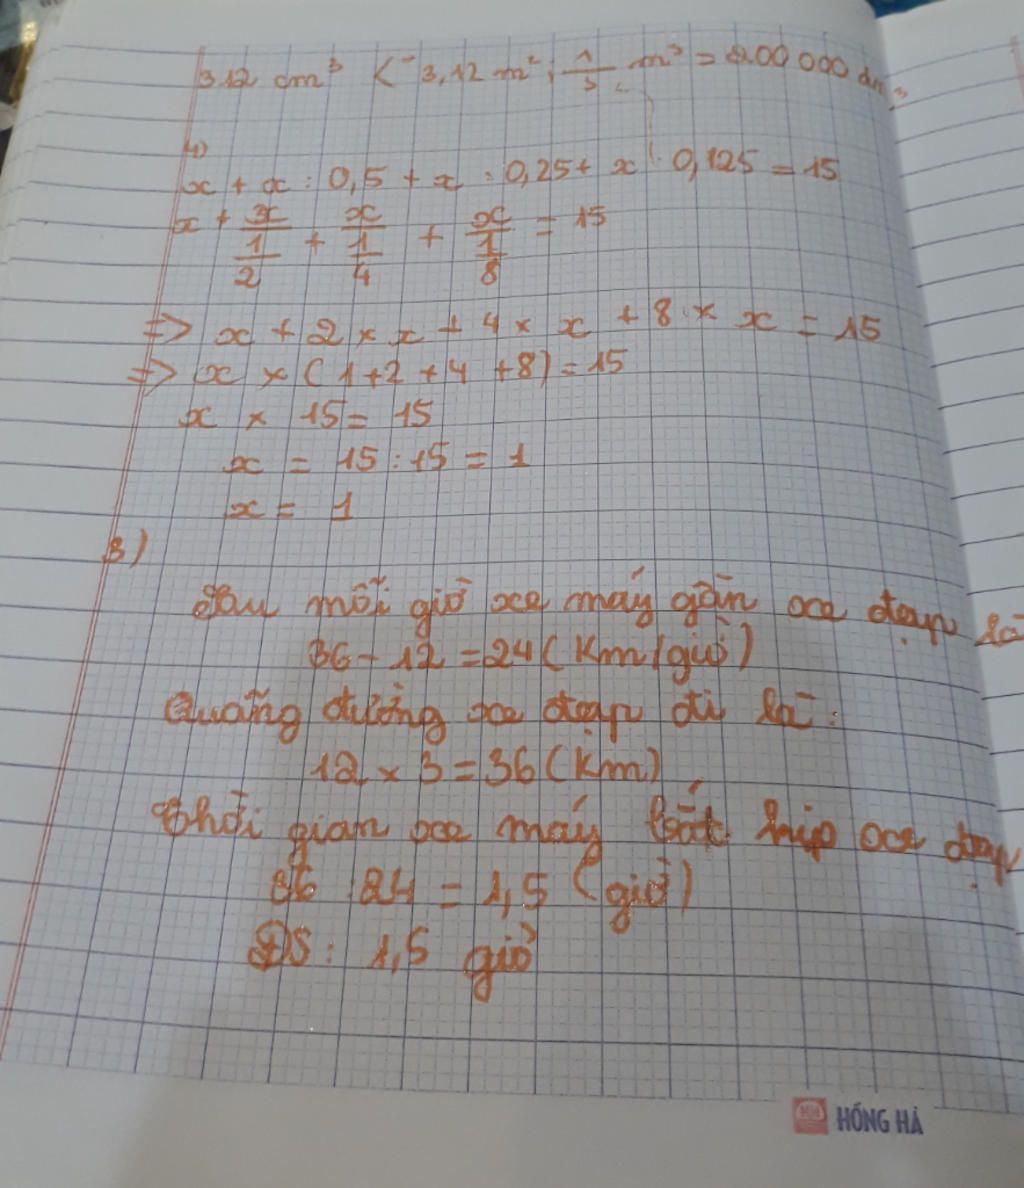 312 cm³ < 3,12 m²; 1/5 m³ = 200 000 dm³
4)
x + x : 0,5 + x : 0,25 + x : 0,125 = 15
x + x/(1/2) + x/(1/4) + x/(1/8) = 15
=> x + 2 × x + 4 × x + 8 × x = 15
=> x × (1+2+4+8) = 15
x × 15 = 15
x = 15 : 15 = 1
x = 1
3)
Sau mỗi giờ xe máy gần xe đạp là
36 - 12 = 24 (Km/giờ)
Quãng đường xe đạp đi là:
12 × 3 = 36 (Km)
Thời gian xe máy bắt kịp xe đạp
36 : 24 = 1,5 (giờ)
ĐS: 1,5 giờ
HỒNG HÀ